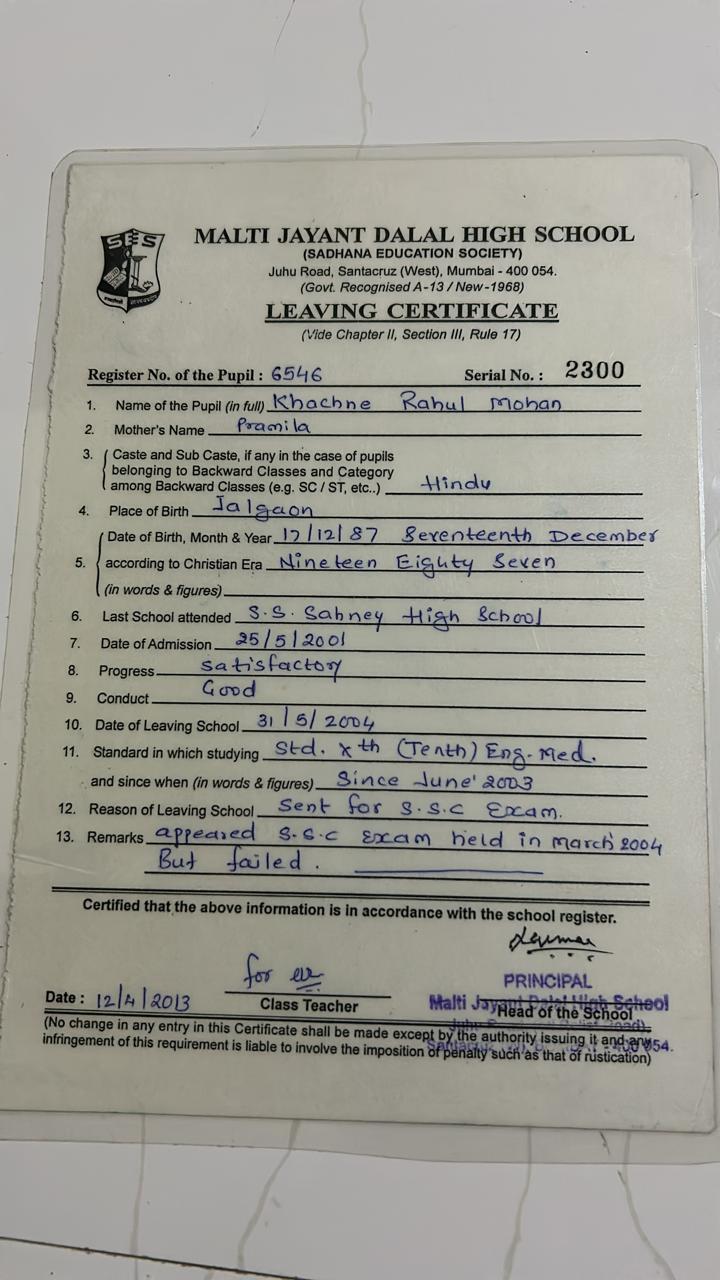 SES
MALTI JAYANT DALAL HIGH SCHOOL
(SADHANA EDUCATION SOCIETY)
Juhu Road, Santacruz (West), Mumbai - 400 054.
(Govt. Recognised A-13 / New-1968)
LEAVING CERTIFICATE
(Vide Chapter II, Section III, Rule 17)
Register No. of the Pupil : 6546 Serial No. : 2300
1. Name of the Pupil (in full) Khachne Rahul Mohan
2. Mother's Name Pramila
3. Caste and Sub Caste, if any in the case of pupils
belonging to Backward Classes and Category
among Backward Classes (e.g. SC / ST, etc..) Hindu
4. Place of Birth Jalgaon
Date of Birth, Month & Year 17/12/87 Seventeenth December
5. according to Christian Era Nineteen Eighty Seven
(in words & figures)
6. Last School attended S.S. Sahney High School
7. Date of Admission 25/5/2001
8. Progress satisfactory
9. Conduct Good
10. Date of Leaving School 31/5/2004
11. Standard in which studying Std. Xth (Tenth) Eng. Med.
and since when (in words & figures) Since June' 2003
12. Reason of Leaving School Sent for S.S.C Exam.
13. Remarks appeared S.S.C Exam held in March' 2004
But failed.
Certified that the above information is in accordance with the school register.
for
PRINCIPAL
Date : 12/4/2013 Class Teacher Malti Jayant Dalal High School
Head of the School
(No change in any entry in this Certificate shall be made except by the authority issuing it and any
infringement of this requirement is liable to involve the imposition of penalty such as that of rustication)